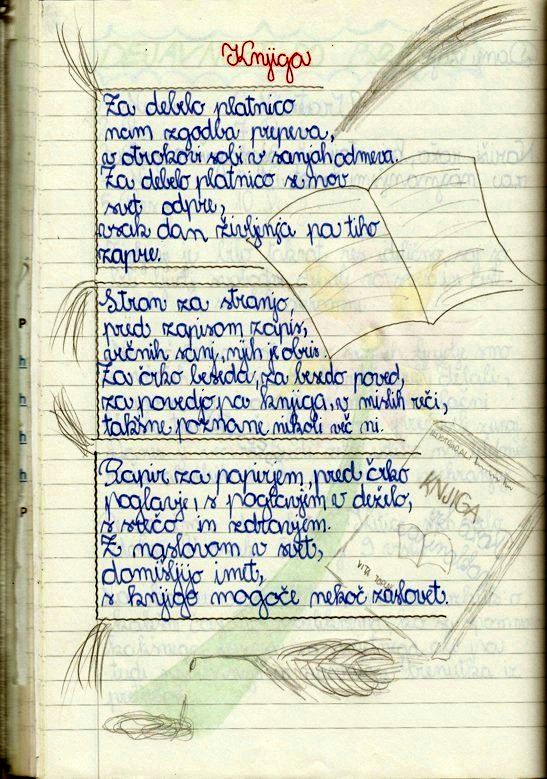 Knjiga
Za debelo platnico
nam zgodba prepeva,
v otrokovi sobi v sanjah odmeva.
Za debelo platnico se nov
svet odpre,
vsak dan življenja pa tiho
zapre.
Stran za stranjo,
pred zapisom zapis,
večnih sanj, njih je obris.
Za črko beseda, za besedo poved,
za povedjo pa knjiga, v mislih reči,
takšne poznane nikoli več ni.
Papir za papirjem, pred črko
poglavje, s poglavjem v deželo,
s srečo in zdravjem.
Z naslovom v svet,
domišljijo imet,
s knjigo mogoče nekoč zaslovet.
KNJIGA
VITA
P
h
h
h
h
P